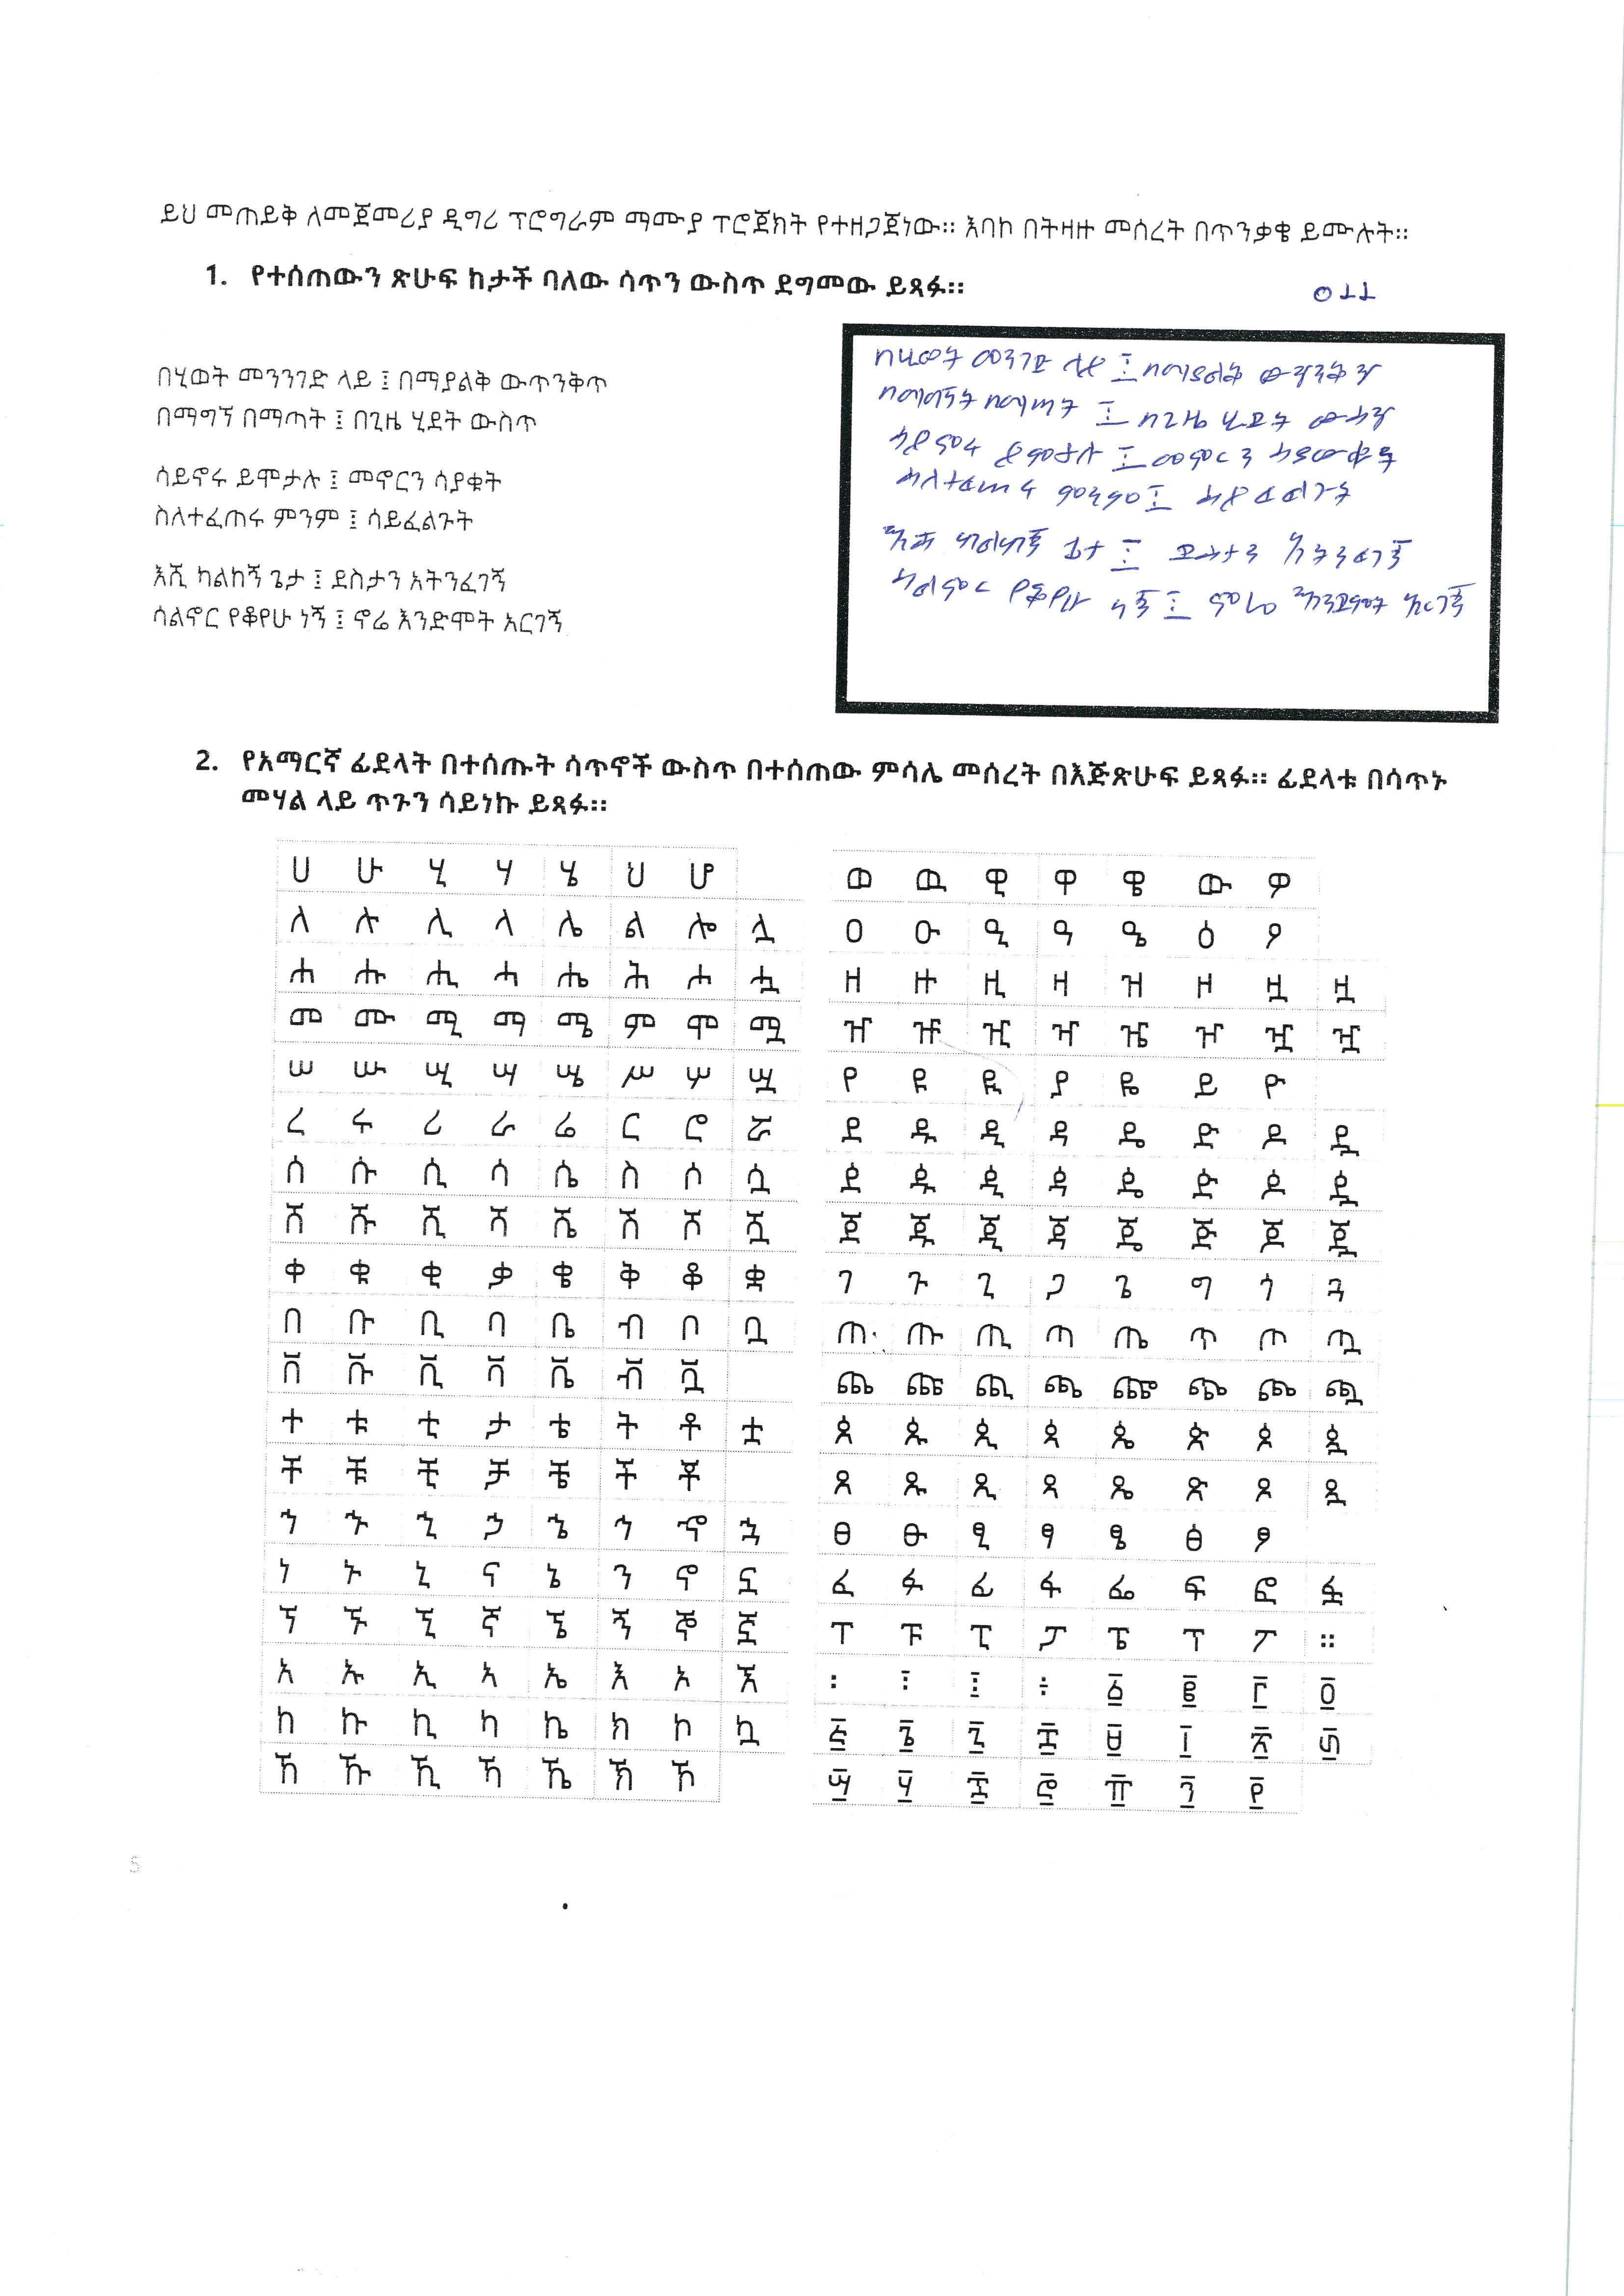 ይህ መጠይቅ ለመጀመሪያ ዲግሪ ፕሮግራም ማሙያ ፕሮጀክት የተዘጋጀነው። እባኮ በትዛዙ መሰረት በጥንቃቄ ይሙሉት።
1. የተሰጠውን ጽሁፍ ከታች ባለው ሳጥን ውስጥ ደግመው ይጻፉ።
011
በሂወት መንንገድ ላይ ፤ በማያልቅ ውጥንቅጥ
በማግኘ በማጣት ፤ በጊዜ ሂደት ውስጥ
ሳይኖሩ ይሞታሉ ፤ መኖርን ሳያቁት
ስለተፈጠሩ ምንም ፤ ሳይፈልጉት
እሺ ካልከኝ ጌታ ፤ ደስታን አትንፈገኝ
ሳልኖር የቆየሁ ነኝ ፤ ኖሬ እንድሞት አርገኝ
በሂወት መንገድ ላይ ፤ በማያልቅ ውጥንቅጥ
በማግኘት በማጣት ፤ በጊዜ ሂደት ውስጥ
ሳይኖሩ ይሞታሉ ፤ መኖርን ሳያውቁት
ስለተፈጠሩ ምንም ፤ ሳይፈልጉት
እሺ ካልከኝ ጌታ ፤ ደስታን አትንፈገኝ
ሳልኖር የቆየሁ ነኝ ፤ ኖሬ እንድሞት አርገኝ
2. የአማርኛ ፊደላት በተሰጡት ሳጥኖች ውስጥ በተሰጠው ምሳሌ መሰረት በእጅጽሁፍ ይጻፉ። ፊደላቱ በሳጥኑ
መሃል ላይ ጥጉን ሳይነኩ ይጻፉ።
ሀ ሁ ሂ ሃ ሄ ህ ሆ
ለ ሉ ሊ ላ ሌ ል ሎ ሏ
ሐ ሑ ሒ ሓ ሔ ሕ ሖ ሗ
መ ሙ ሚ ማ ሜ ም ሞ ሟ
ሠ ሡ ሢ ሣ ሤ ሥ ሦ ሧ
ረ ሩ ሪ ራ ሬ ር ሮ ሯ
ሰ ሱ ሲ ሳ ሴ ስ ሶ ሷ
ሸ ሹ ሺ ሻ ሼ ሽ ሾ ሿ
ቀ ቁ ቂ ቃ ቄ ቅ ቆ ቋ
በ ቡ ቢ ባ ቤ ብ ቦ ቧ
ቨ ቩ ቪ ቫ ቬ ቭ ቯ
ተ ቱ ቲ ታ ቴ ት ቶ ቷ
ቸ ቹ ቺ ቻ ቼ ች ቾ
ኀ ኁ ኂ ኃ ኄ ኅ ኆ ኋ
ነ ኑ ኒ ና ኔ ን ኖ ኗ
ኘ ኙ ኚ ኛ ኜ ኝ ኞ ኟ
አ ኡ ኢ ኣ ኤ እ ኦ ኧ
ከ ኩ ኪ ካ ኬ ክ ኮ ኳ
ኸ ኹ ኺ ኻ ኼ ኽ ኾ
ወ ዉ ዊ ዋ ዌ ው ዎ
ዐ ዑ ዒ ዓ ዔ ዕ ዖ
ዘ ዙ ዚ ዛ ዝ ዞ ዟ ዟ
ዠ ዡ ዢ ዣ ዤ ዦ ዧ ዧ
የ ዩ ዪ ያ ዬ ይ ዮ
ደ ዱ ዲ ዳ ዴ ድ ዶ ዷ
ዸ ዹ ዺ ዻ ዼ ዽ ዾ ዿ
ጀ ጁ ጂ ጃ ጄ ጅ ጆ ጇ
ገ ጉ ጊ ጋ ጌ ግ ጎ ጓ
ጠ ጡ ጢ ጣ ጤ ጥ ጦ ጧ
ጨ ጩ ጪ ጫ ጬ ጭ ጮ ጯ
ጰ ጱ ጲ ጳ ጴ ጵ ጶ ጷ
ጸ ጹ ጺ ጻ ጼ ጽ ጾ ጿ
ፀ ፁ ፂ ፃ ፄ ፅ ፆ
ፈ ፉ ፊ ፋ ፌ ፍ ፎ ፏ
ፐ ፑ ፒ ፓ ፔ ፕ ፖ ።
፡ ፣ ፤ ÷ ፩ ፪ ፫ ፬
፭ ፮ ፯ ፰ ፱ ፲ ፳ ፴
፵ ፶ ፷ ፸ ፹ ፺ ፻